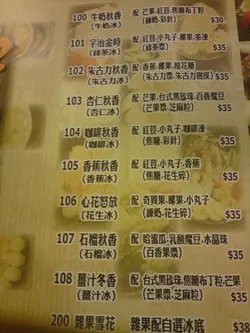 100 牛奶秋香 配 芒果.紅豆.焦糖布丁粒
(牛奶冰) (煉奶.彩針) $35
101 宇治金時 配 紅豆.小丸子.椰果.茶凍
(綠茶冰) (綠茶漿) $35
102 朱古力秋香 配
(朱古力冰) (朱古力漿.朱古力樹皮) $35
103 杏仁秋香 配 芒果.台式黑珍珠.百香魔豆
(杏仁冰) (芒果漿.芝麻粒) $35
104 咖啡秋香 配 紅豆.小丸子.咖啡凍
(咖啡冰) (焦糖.彩針) $35
105 香蕉秋香 配 紅豆.小丸子.香蕉
(香蕉冰) (焦糖.花生碎) $35
106 心花怒放 配 奇異果.椰果.小丸子
(花生冰) (煉奶.花生碎) $35
107 石榴秋香 配 哈蜜瓜.乳酸魔豆.水晶珠
(石榴冰) (百香果漿) $35
108 薑汁冬香 配 台式黑珍珠.焦糖布丁粒.芒果
(薑汁冰) (芒果漿.芝麻粒) $35
200 雜果雪花 雜果配自選冰底